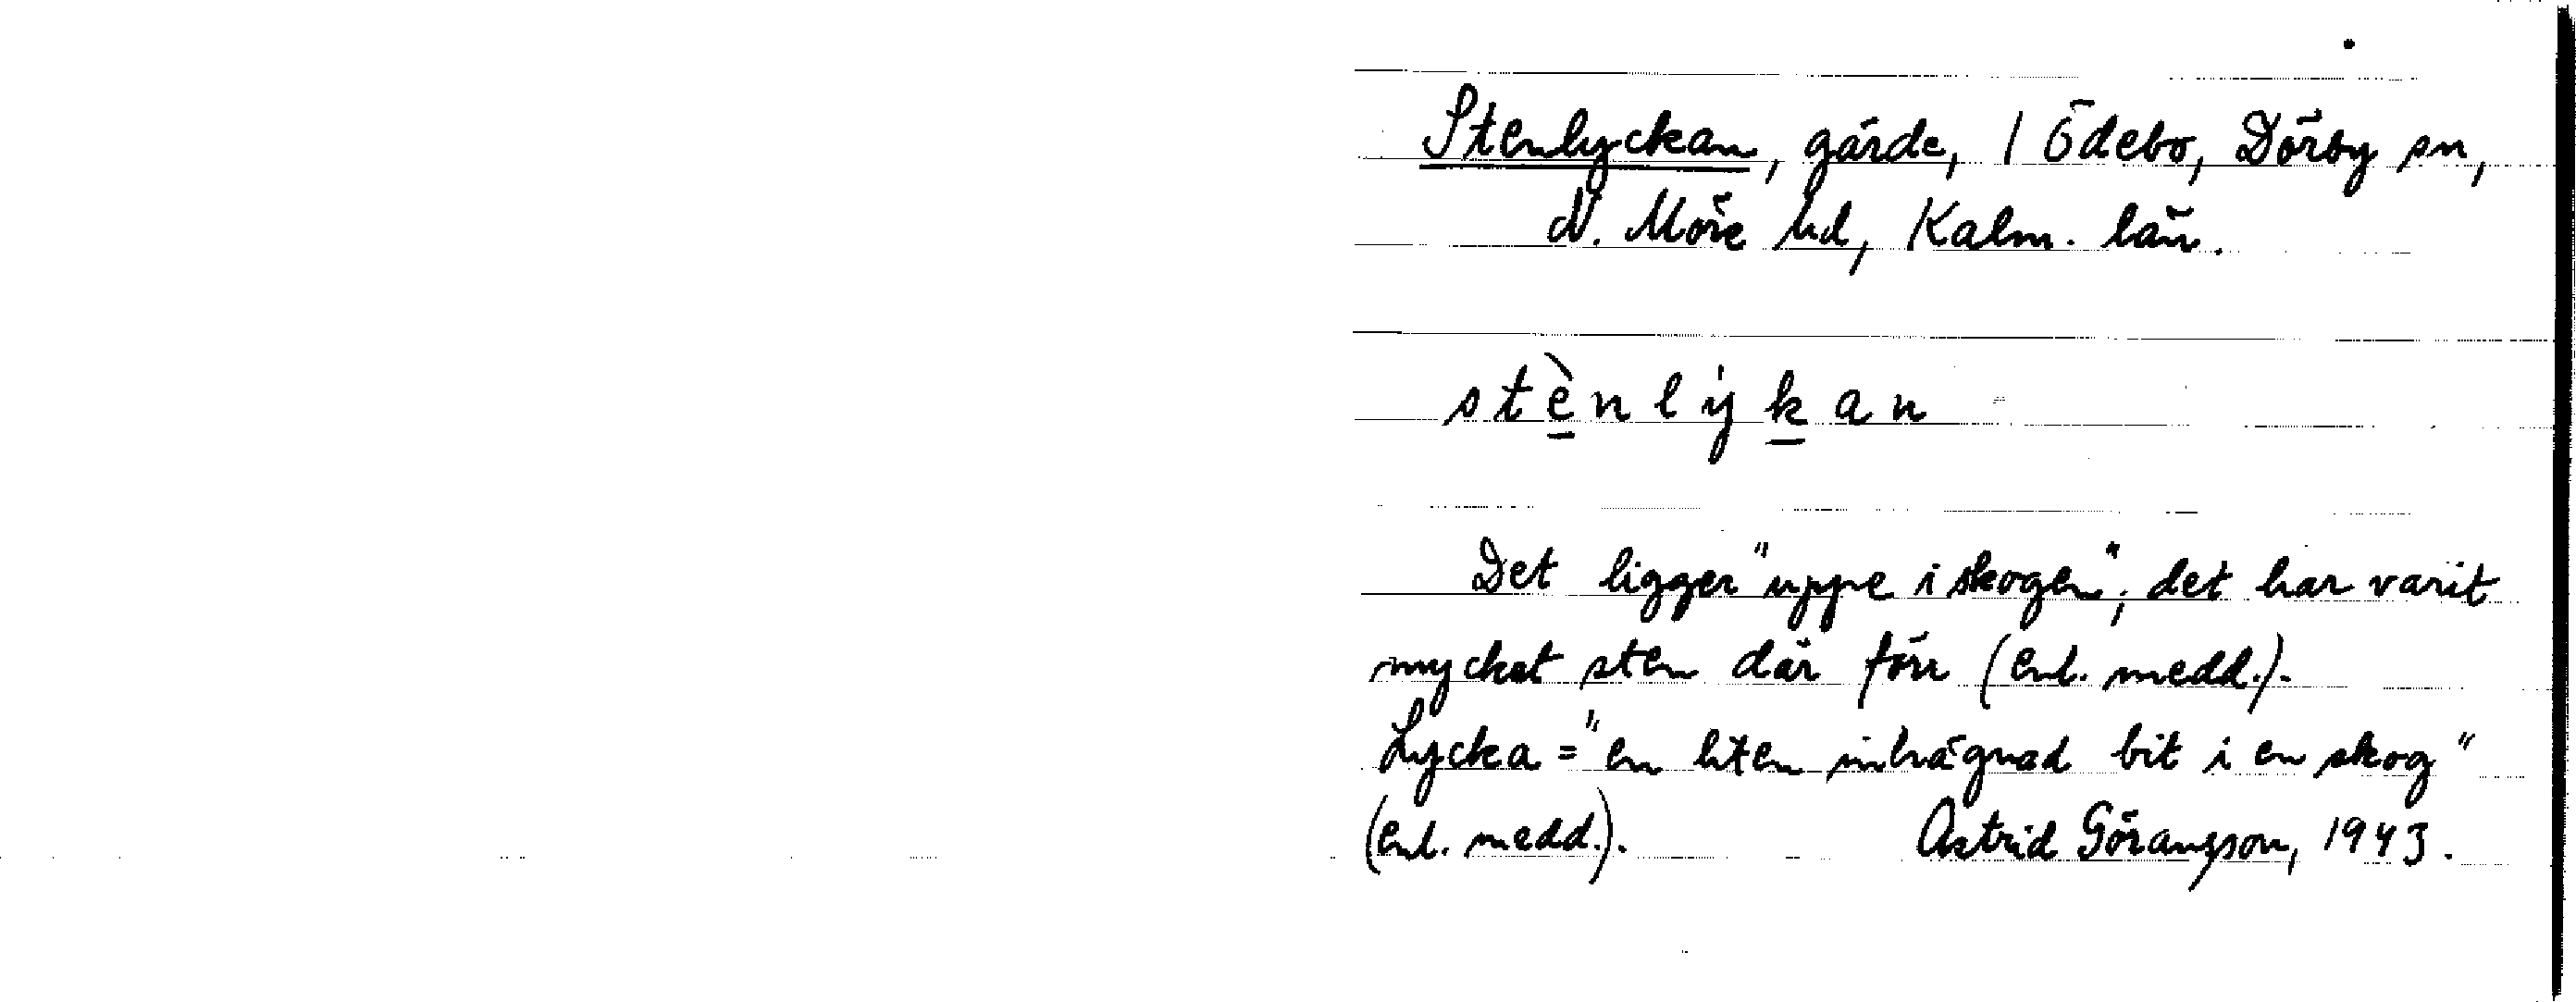 Stenlyckan, gärde, 1 Ödebo, Dörby sn,
N. Möre hd, Kalm. län.
stènlýkan
Det ligger "uppe i skogen"; det har varit
mycket sten där förr (enl. medd.).
Lycka = "en liten inhägnad bit i en skog"
(enl. medd.). Astrid Göransson, 1943.